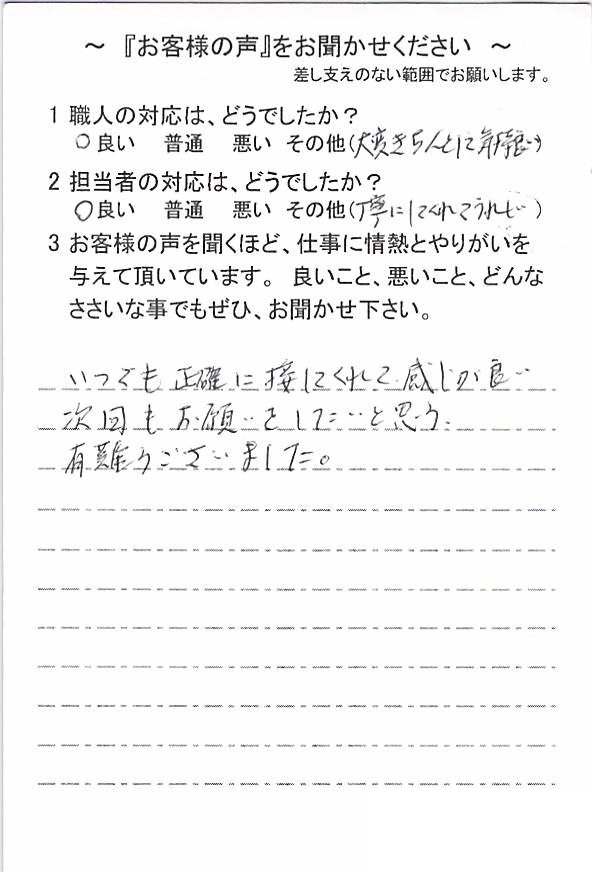 ～ 『お客様の声』をお聞かせください ～
差し支えのない範囲でお願いします。
1 職人の対応は、どうでしたか？
○良い 普通 悪い その他(大変きちんとに気持良い)
2 担当者の対応は、どうでしたか？
○良い 普通 悪い その他(丁寧にしてくれてうれしい)
3 お客様の声を聞くほど、仕事に情熱とやりがいを
与えて頂いています。 良いこと、悪いこと、どんな
ささいな事でもぜひ、お聞かせ下さい。
いつでも正確に接してくれて感じが良い
次回もお願いをしたいと思う.
有難うございました。